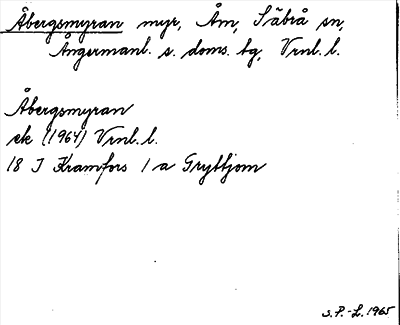 Åbergsmyran myr, Åm, Säbrå sn,
Ångermanl. s. doms. tg, Vrnl. l.
Åbergsmyran
ek (1964) Vrnl. l.
18 I Kramfors 1 a Gryttjom
S. P.-L. 1965